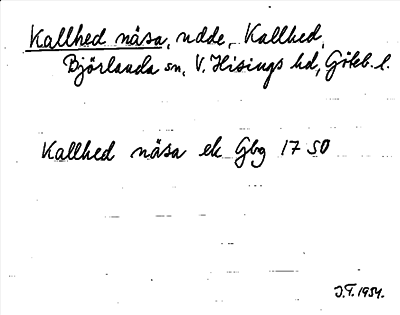 Kallhed näsa, udde, Kallhed,
Björlanda sn, V. Hisings hd, Göteb. l.
Kallhed näsa ek Gbg 1750
J.T. 1954.